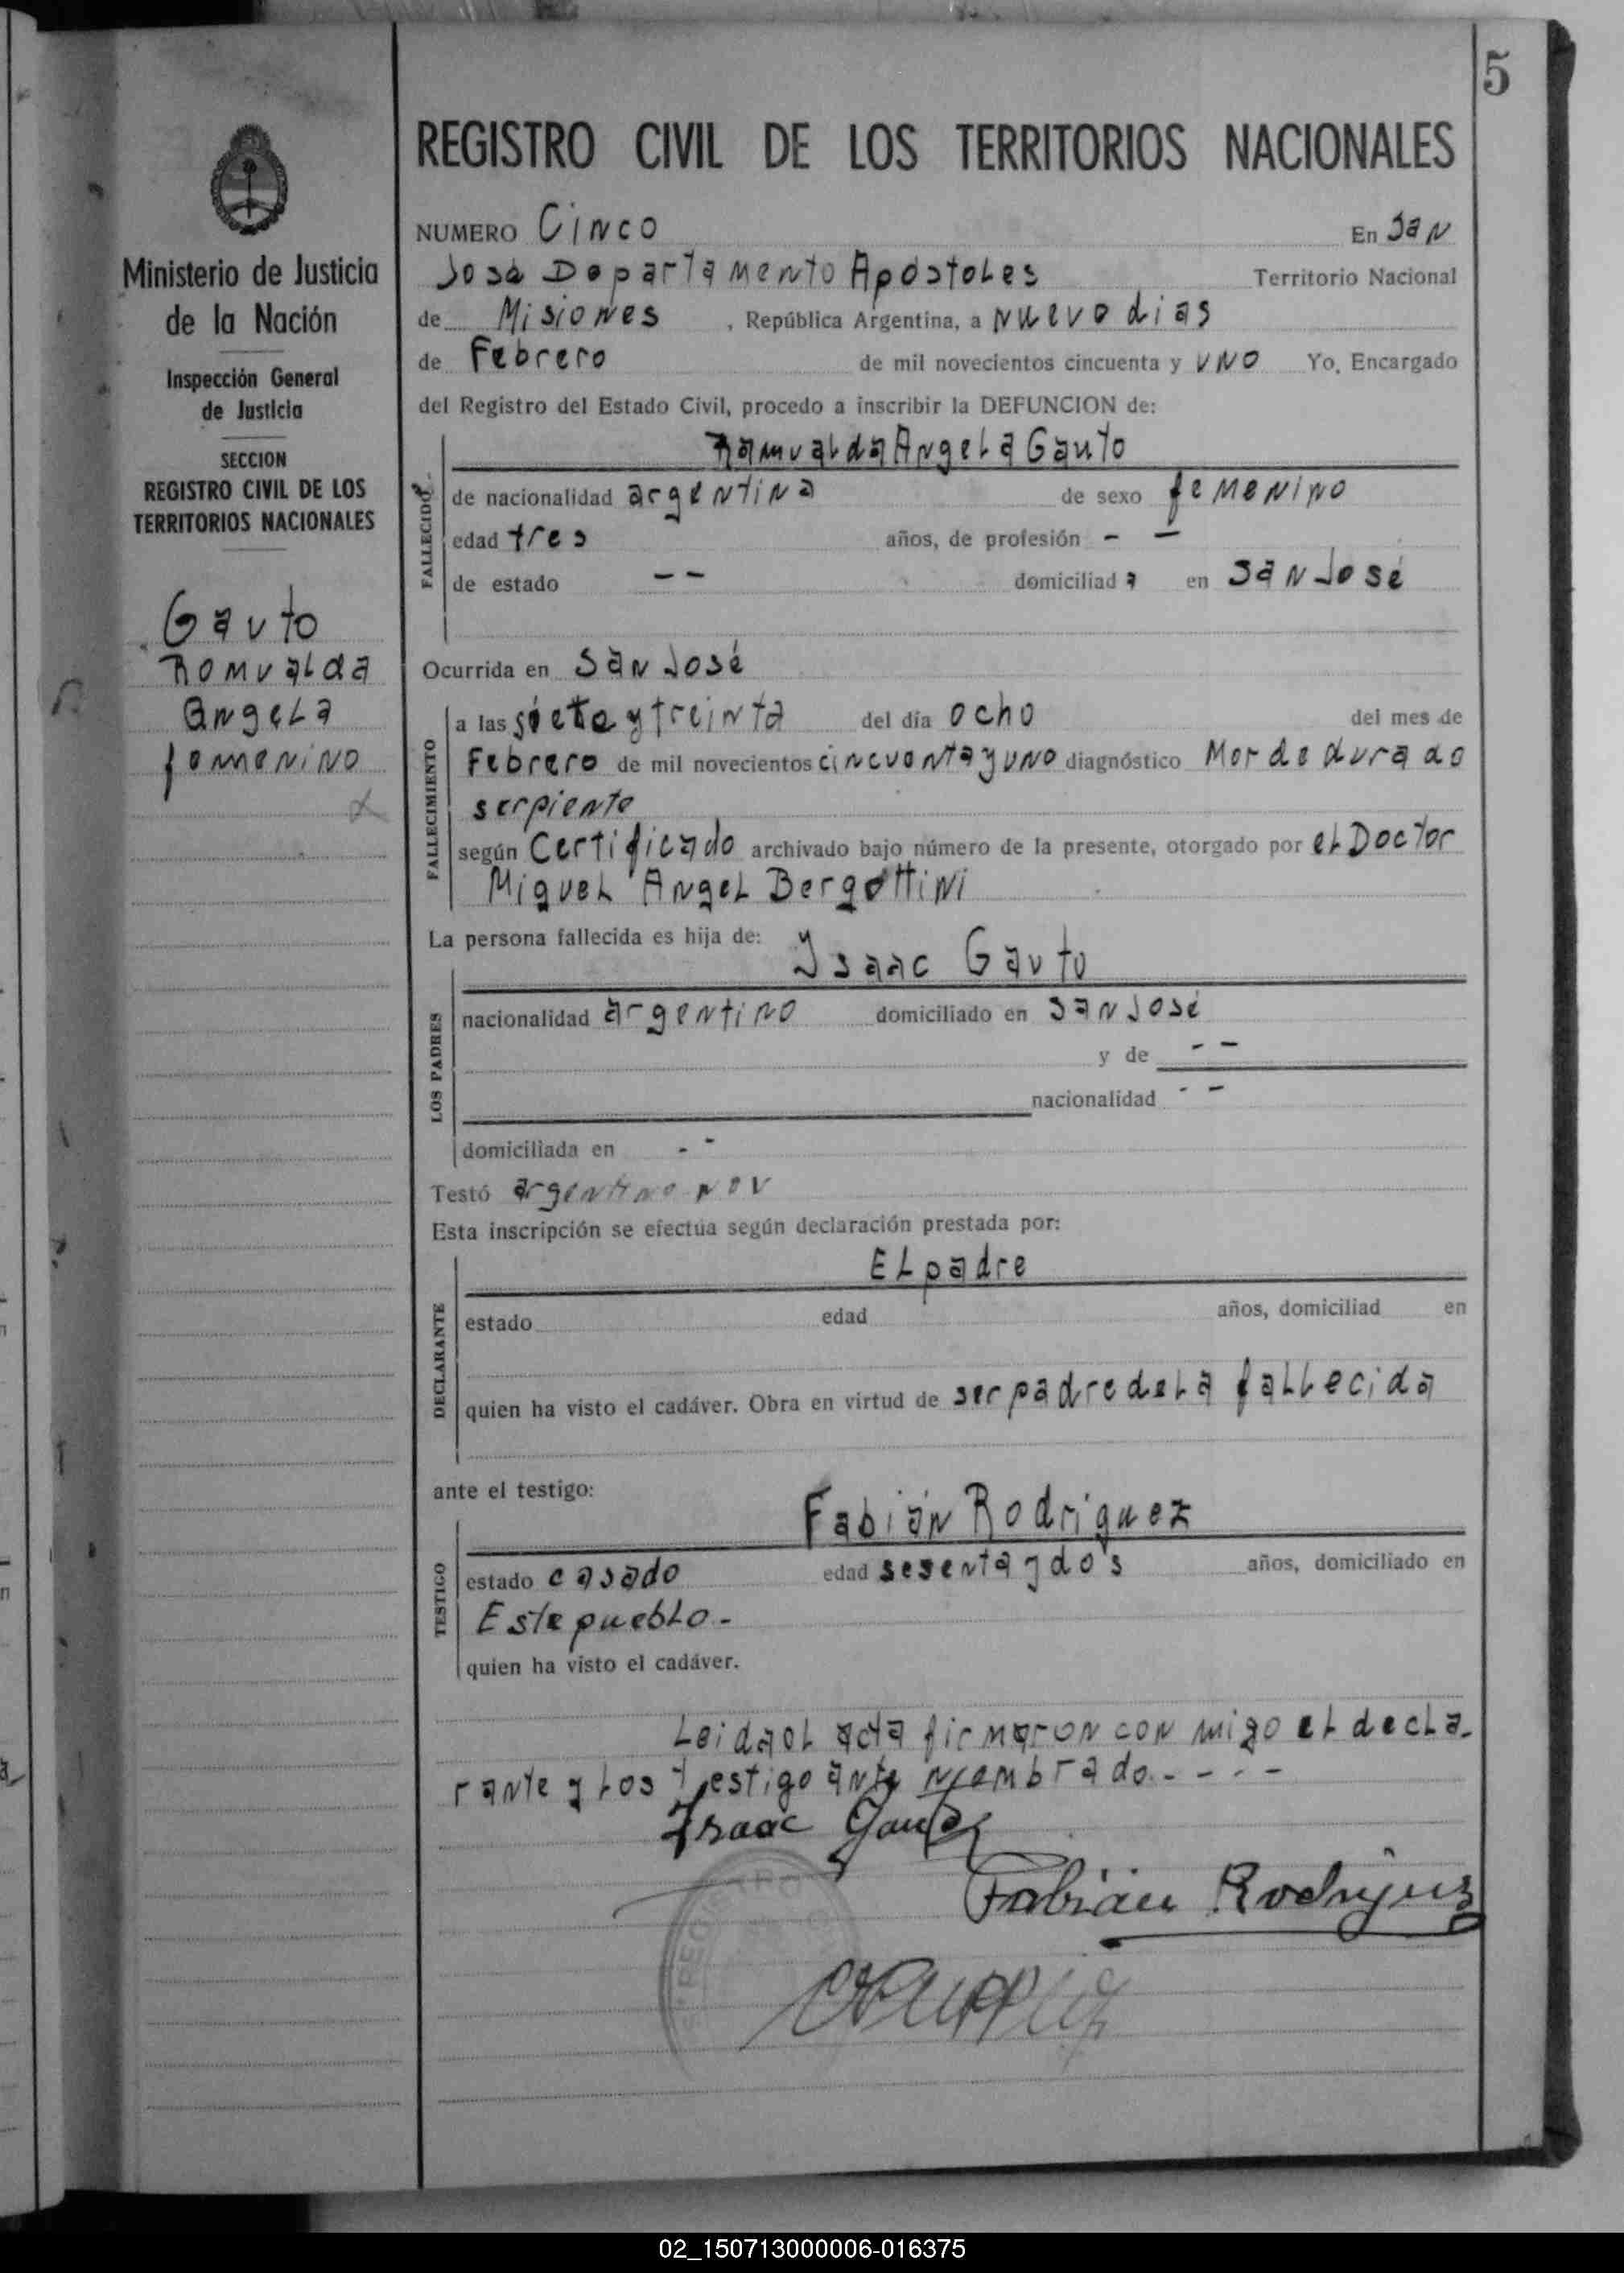 5
REGISTRO CIVIL DE LOS TERRITORIOS NACIONALES
Ministerio de Justicia
de la Nación
Inspección General
de Justicia
SECCION
REGISTRO CIVIL DE LOS
TERRITORIOS NACIONALES
Gauto
Romualda
Angela
femenino
NUMERO Cinco En San
José Departamento Apóstoles Territorio Nacional
de Misiones , República Argentina, a nueve dias
de Febrero de mil novecientos cincuenta y uno Yo, Encargado
del Registro del Estado Civil, procedo a inscribir la DEFUNCION de:
Ramualda Angela Gauto
FALLECIDO
de nacionalidad argentina de sexo femenino
edad tres años, de profesión - -
de estado - - domiciliada en San José
Ocurrida en San José
FALLECIMIENTO
a las siete y treinta del día ocho del mes de
Febrero de mil novecientos cincuenta y uno diagnóstico Mordedura de
serpiente
según Certificado archivado bajo número de la presente, otorgado por el Doctor
Miguel Angel Bergottini
La persona fallecida es hija de:
Ysaac Gauto
LOS PADRES
nacionalidad argentino domiciliado en San José
y de - -
nacionalidad - -
domiciliada en - -
Testó argentino nov
Esta inscripción se efectúa según declaración prestada por:
El padre
DECLARANTE
estado edad años, domiciliad en
quien ha visto el cadáver. Obra en virtud de ser padre de la fallecida
ante el testigo:
Fabián Rodriguez
TESTIGO
estado casado edad sesenta y dos años, domiciliado en
Este pueblo.-
quien ha visto el cadáver.
Leida el acta firmaron con migo el decla-
rante y los testigo ante nombrado.- - - -
Isaac Gauto
Fabián Rodriguez
02_150713000006-016375